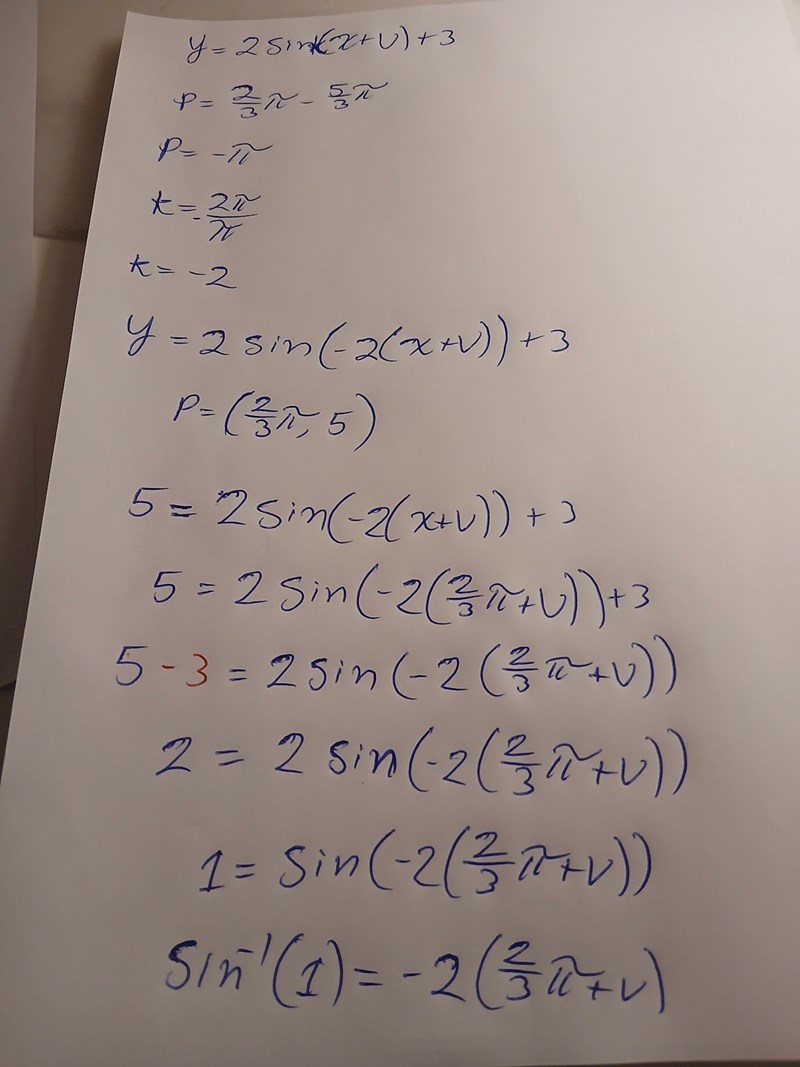 y = 2 sin k(x+v) + 3
P = 2/3 π - 5/3 π
P = -π
k = - 2π/π
k = -2
y = 2 sin(-2(x+v)) + 3
P = (2/3 π, 5)
5 = 2 sin(-2(x+v)) + 3
5 = 2 sin(-2(2/3 π + v)) + 3
5 - 3 = 2 sin(-2(2/3 π + v))
2 = 2 sin(-2(2/3 π + v))
1 = sin(-2(2/3 π + v))
sin⁻¹(1) = -2(2/3 π + v)